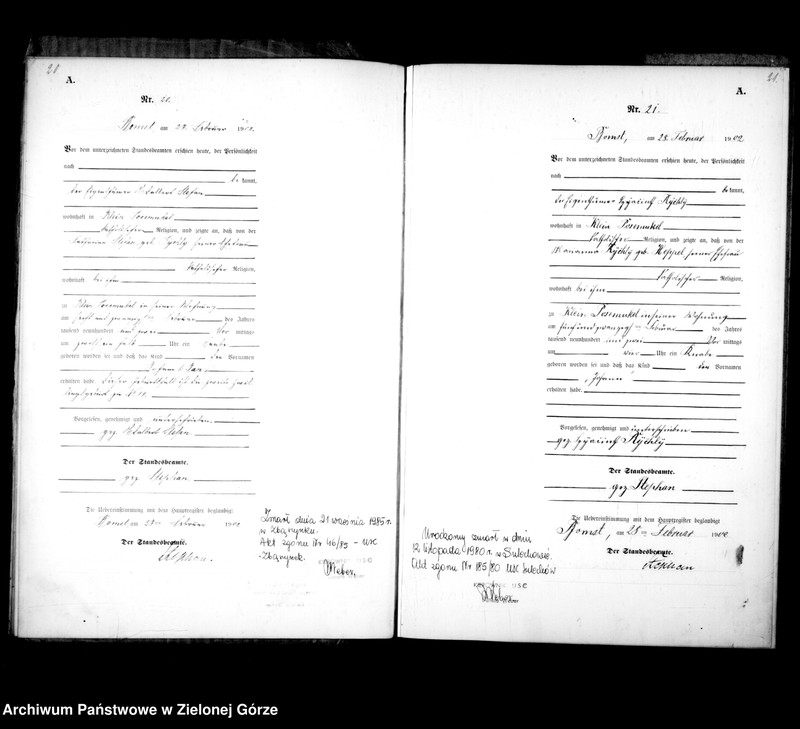 20
A.
Nr. 20.
Komst am 27. Februar 190
Vor dem unterzeichneten Standesbeamten erschien heute, der Persönlichkeit
nach
be kannt,
der Eigenthümer Adalbert Stefan
wohnhaft in Klein Posemukel
katholischer Religion, und zeigte an, daß von der
geb. seiner Ehefrau
katholischer Religion,
wohnhaft bei ihm
in Klein Posemukel in seiner Wohnung
am Februar des Jahres
tausend neunhundert und zwei Vor mittags
um Uhr ein Knabe
geboren worden sei und daß das Kind den Vornamen
erhalten habe.
Vorgelesen, genehmigt und unterschrieben
gez. Adalbert Stefan
Der Standesbeamte.
gez. Stephan.
Die Uebereinstimmung mit dem Hauptregister beglaubigt
Komst am Februar 190
Der Standesbeamte.
Stephan.
Zmarł dnia 21 września 1985 r.
w Zbąszynku.
Akt zgonu Nr 46/85 - USC
Zbąszynek.
21.
A.
Nr. 21.
Komst, am 28. Februar 1902
Vor dem unterzeichneten Standesbeamten erschien heute, der Persönlichkeit
nach
be kannt,
der Eigenthümer Hyacinth Rychly
wohnhaft in Klein Posemukel
katholischer Religion, und zeigte an, daß von der
Marianna Rychly geb. Heppel seiner Ehefrau
katholischer Religion,
wohnhaft bei ihm
in Klein Posemukel in seiner Wohnung
am fünfundzwanzigsten Februar des Jahres
tausend neunhundert und zwei Vor mittags
um vier Uhr ein Knabe
geboren worden sei und daß das Kind den Vornamen
„Johann“
erhalten habe.
Vorgelesen, genehmigt und unterschrieben
gez. Hyacinth Rychly
Der Standesbeamte.
gez. Stephan
Die Uebereinstimmung mit dem Hauptregister beglaubigt
Komst, am 28ten Februar 1902
Der Standesbeamte.
Stephan
Urodzony zmarł w dniu
12 listopada 1980 r. w Sulechowie.
Akt zgonu Nr 185/80 USC Sulechów
Archiwum Państwowe w Zielonej Górze